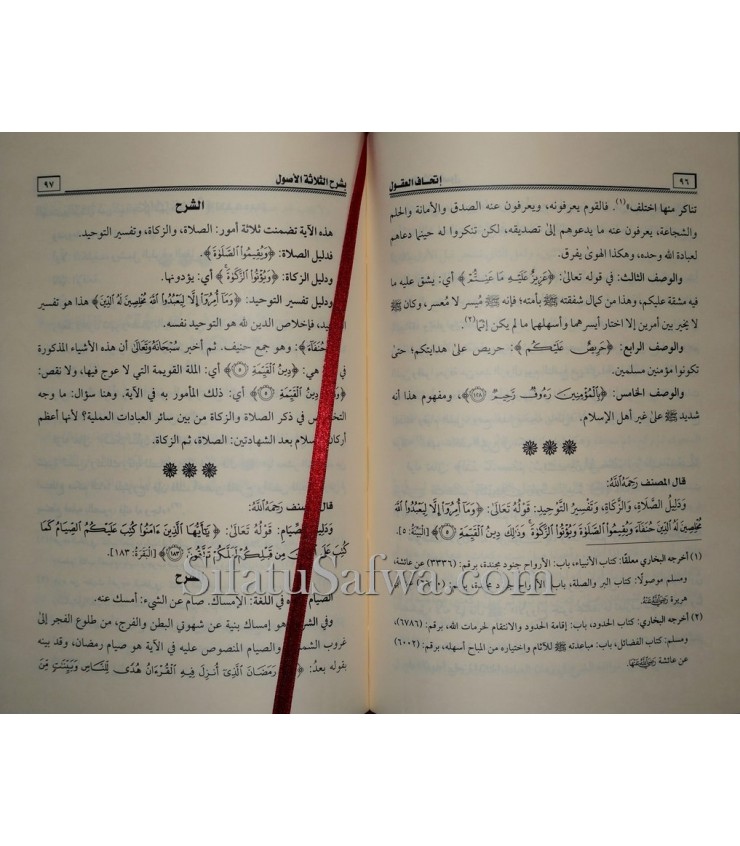 ٩٦
إتحاف العقول
تناكر منها اختلف»(١). فالقوم يعرفونه، ويعرفون عنه الصدق والأمانة والحلم
والشجاعة، يعرفون عنه ما يدعوهم إلى تصديقه، لكن تنكروا له حينما دعاهم
لعبادة الله وحده، وهكذا الهوى يفرق.
والوصف الثالث: في قوله تعالى: ﴿عَزِيزٌ عَلَيْهِ مَا عَنِتُّمْ﴾ أي: يشق عليه ما
فيه مشقة عليكم، وهذا من كمال شفقته ﷺ بأمته؛ فإنه ﷺ مُيسر لا مُعسر، وكان
لا يخير بين أمرين إلا اختار أيسرهما وأسهلهما ما لم يكن إثمًا(٢).
والوصف الرابع: ﴿حَرِيصٌ عَلَيْكُم﴾: حريص على هدايتكم؛ حتى
تكونوا مؤمنين مسلمين.
والوصف الخامس: ﴿بِالْمُؤْمِنِينَ رَءُوفٌ رَّحِيمٌ ١٢٨﴾، ومفهوم هذا أنه
شديد ﷺ على غير أهل الإسلام.
قال المصنف رَحِمَهُ اللَّهُ:
وَدَلِيلُ الصَّلَاةِ، وَالزَّكَاةِ، وَتَفْسِيرِ التَّوْحِيدِ: قَوْلُهُ تَعَالَى: ﴿وَمَا أُمِرُوا إِلَّا لِيَعْبُدُوا اللَّهَ
مُخْلِصِينَ لَهُ الدِّينَ حُنَفَاءَ وَيُقِيمُوا الصَّلَوٰةَ وَيُؤْتُوا الزَّكَوٰةَ ۚ وَذَٰلِكَ دِينُ الْقَيِّمَةِ ٥﴾ [البَيِّنَة: ٥].
(١) أخرجه البخاري معلقًا: كتاب الأنبياء، باب: الأرواح جنود مجندة، برقم: (٣٣٣٦) عن عائشة،
ومسلم موصولًا: كتاب البر والصلة، باب: الأرواح جنود مجندة، برقم: عن أبي
هريرة رَضِيَ اللَّهُ عَنْهُ.
(٢) أخرجه البخاري: كتاب الحدود، باب: إقامة الحدود والانتقام لحرمات الله، برقم: (٦٧٨٦)،
ومسلم: كتاب الفضائل، باب: مباعدته ﷺ للآثام واختياره من المباح أسهله، برقم: (٦٠٠٢)
عن عائشة رَضِيَ اللَّهُ عَنْهَا.
بشرح الثلاثة الأصول
٩٧
الشرح
هذه الآية تضمنت ثلاثة أمور: الصلاة، والزكاة، وتفسير التوحيد.
فدليل الصلاة: ﴿وَيُقِيمُوا الصَّلَوٰةَ﴾.
ودليل الزكاة: ﴿وَيُؤْتُوا الزَّكَوٰةَ﴾ أي: يؤدونها.
ودليل تفسير التوحيد: ﴿وَمَا أُمِرُوا إِلَّا لِيَعْبُدُوا اللَّهَ مُخْلِصِينَ لَهُ الدِّينَ﴾ هذا هو تفسير
التوحيد، فإخلاص الدين لله هو التوحيد نفسه.
﴿حُنَفَاءَ﴾: وهو جمع حنيف. ثم أخبر سُبْحَانَهُ وَتَعَالَى أن هذه الأشياء المذكورة
في هي: ﴿دِينُ الْقَيِّمَةِ ٥﴾ أي: الملة القويمة التي لا عوج فيها، ولا نقص:
دِينُ الْقَيِّمَةِ ٥﴾ ذلك المأمور به في الآية. وهنا سؤال: ما وجه
في ذكر الصلاة والزكاة من بين سائر العبادات العملية؟ لأنها أعظم
أركان الإسلام بعد الشهادتين: الصلاة، ثم الزكاة.
قال المصنف رَحِمَهُ اللَّهُ:
وَدَلِيلُ الصِّيَامِ: قَوْلُهُ تَعَالَى: ﴿يَٰأَيُّهَا الَّذِينَ ءَامَنُوا كُتِبَ عَلَيْكُمُ الصِّيَامُ كَمَا
كُتِبَ عَلَى مِن قَبْلِكُمْ لَعَلَّكُمْ تَتَّقُونَ ١٨٣﴾ [البَقَرَة: ١٨٣].
الشرح
الصيام في اللغة: الإمساك. صام عن الشيء: أمسك عنه.
وفي الشرع هو إمساك بنية عن شهوتي البطن والفرج، من طلوع الفجر إلى
غروب الشمس، والصيام المنصوص عليه في الآية هو صيام رمضان، وقد بينه
بقوله بعدُ: رَمَضَانَ الَّذِي أُنزِلَ فِيهِ الْقُرْءَانُ هُدًى لِّلنَّاسِ وَبَيِّنَٰتٍ مِّنَ
SifatuSafwa.com